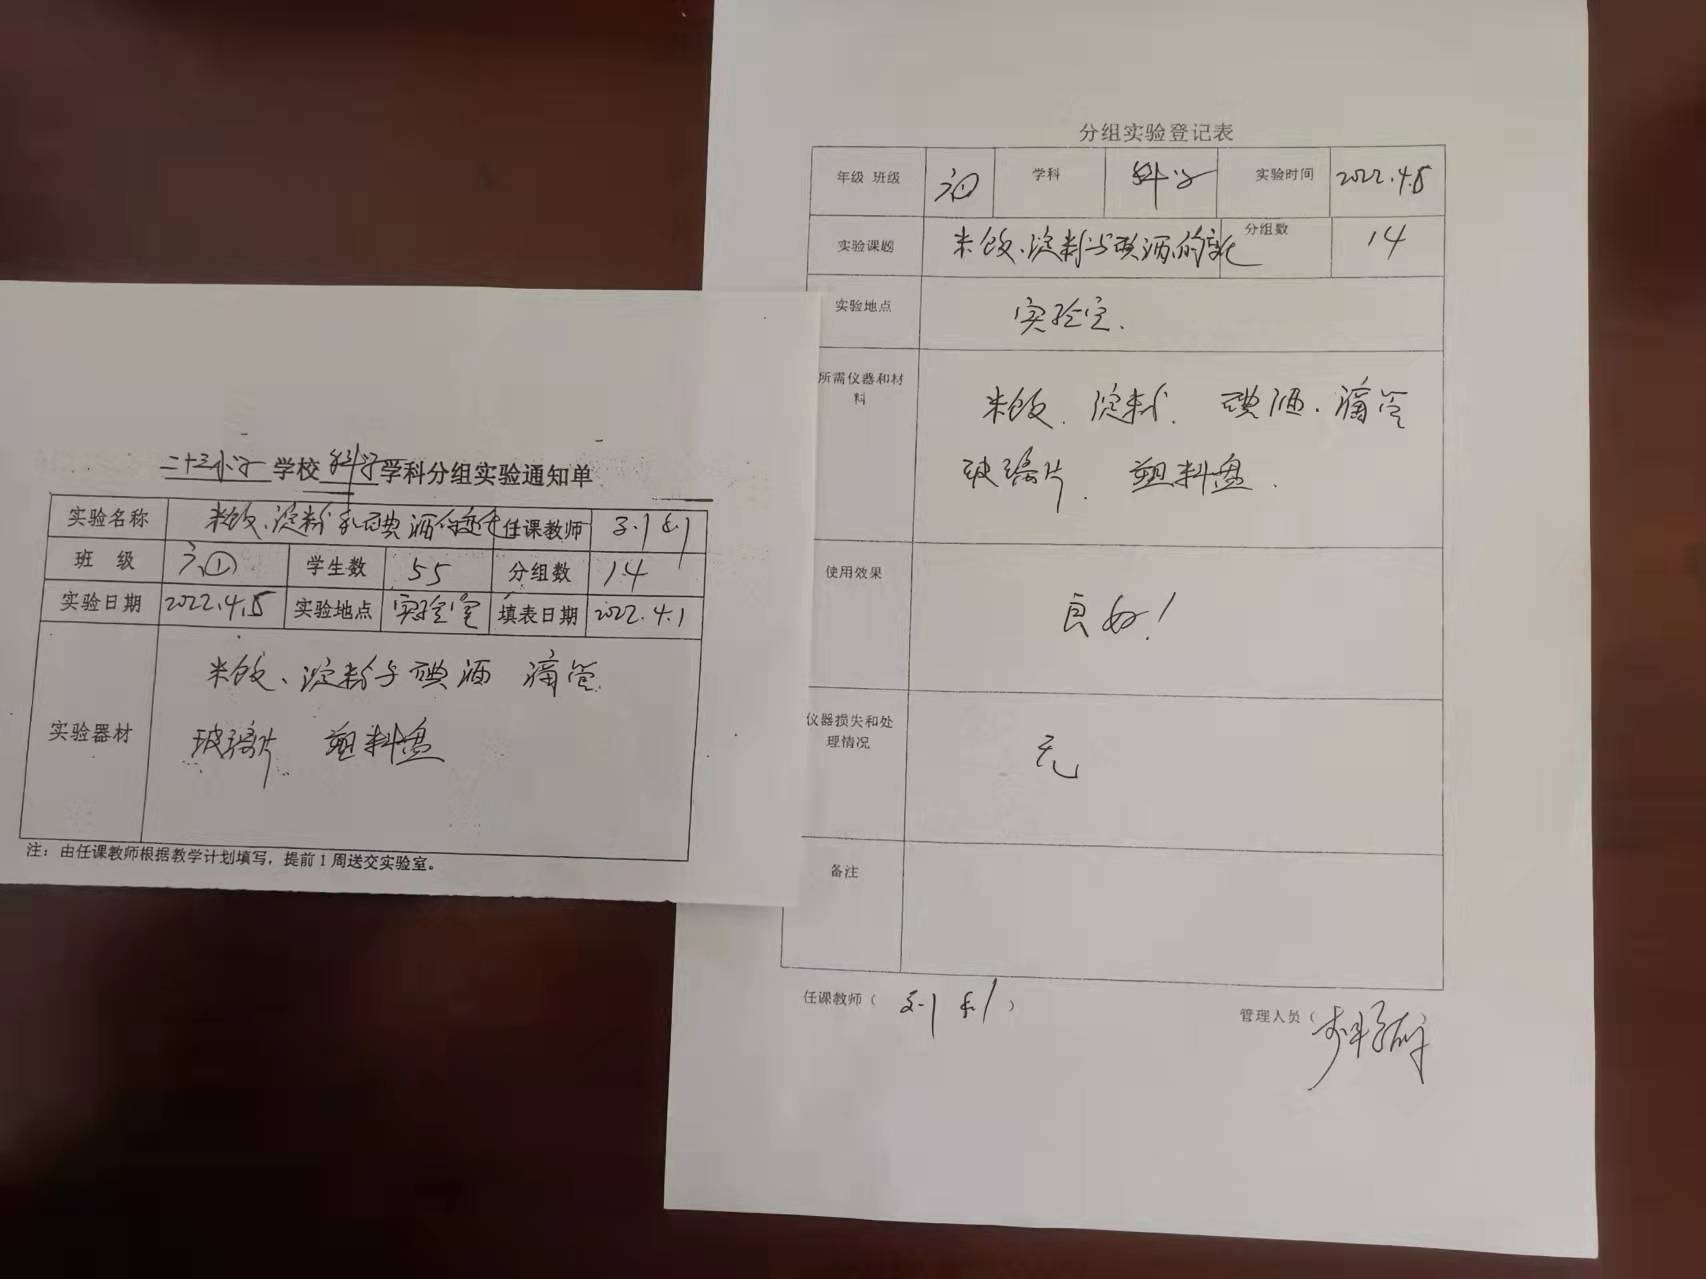 二十三小学学校科学学科分组实验通知单
实验名称 米饭、淀粉和碘酒的变化 任课教师
班 级 六① 学生数 55 分组数 14
实验日期 2022.4.15 实验地点 实验室 填表日期 2022.4.1
实验器材
米饭、淀粉与碘酒 滴管
玻璃片 塑料盘
注：由任课教师根据教学计划填写，提前1周送交实验室。
分组实验登记表
年级 班级 六① 学科 科学 实验时间 2022.4.15
实验课题 米饭、淀粉与碘酒的变化 分组数 14
实验地点 实验室.
所需仪器和材
料
米饭、淀粉、碘酒、滴管
玻璃片、塑料盘.
使用效果 良好！
仪器损失和处
理情况
无
备注
任课教师（ ）
管理人员（